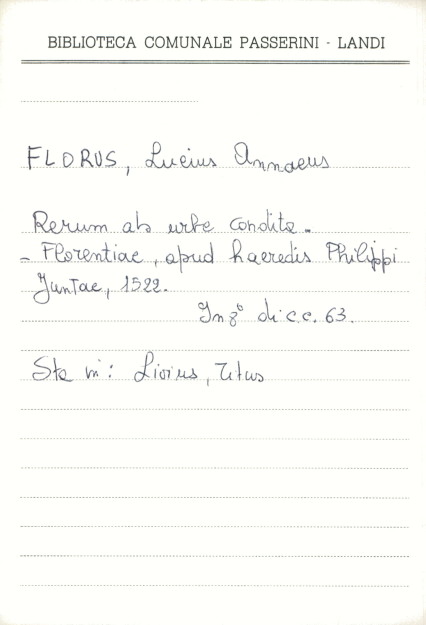 BIBLIOTECA COMUNALE PASSERINI - LANDI
FLORUS, Lucius Annaeus
Rerum ab urbe condita.
- Florentiae, apud haeredis Philippi
Juntae, 1522.
In 8° di c.c. 63.
Sta in: Livius, Titus